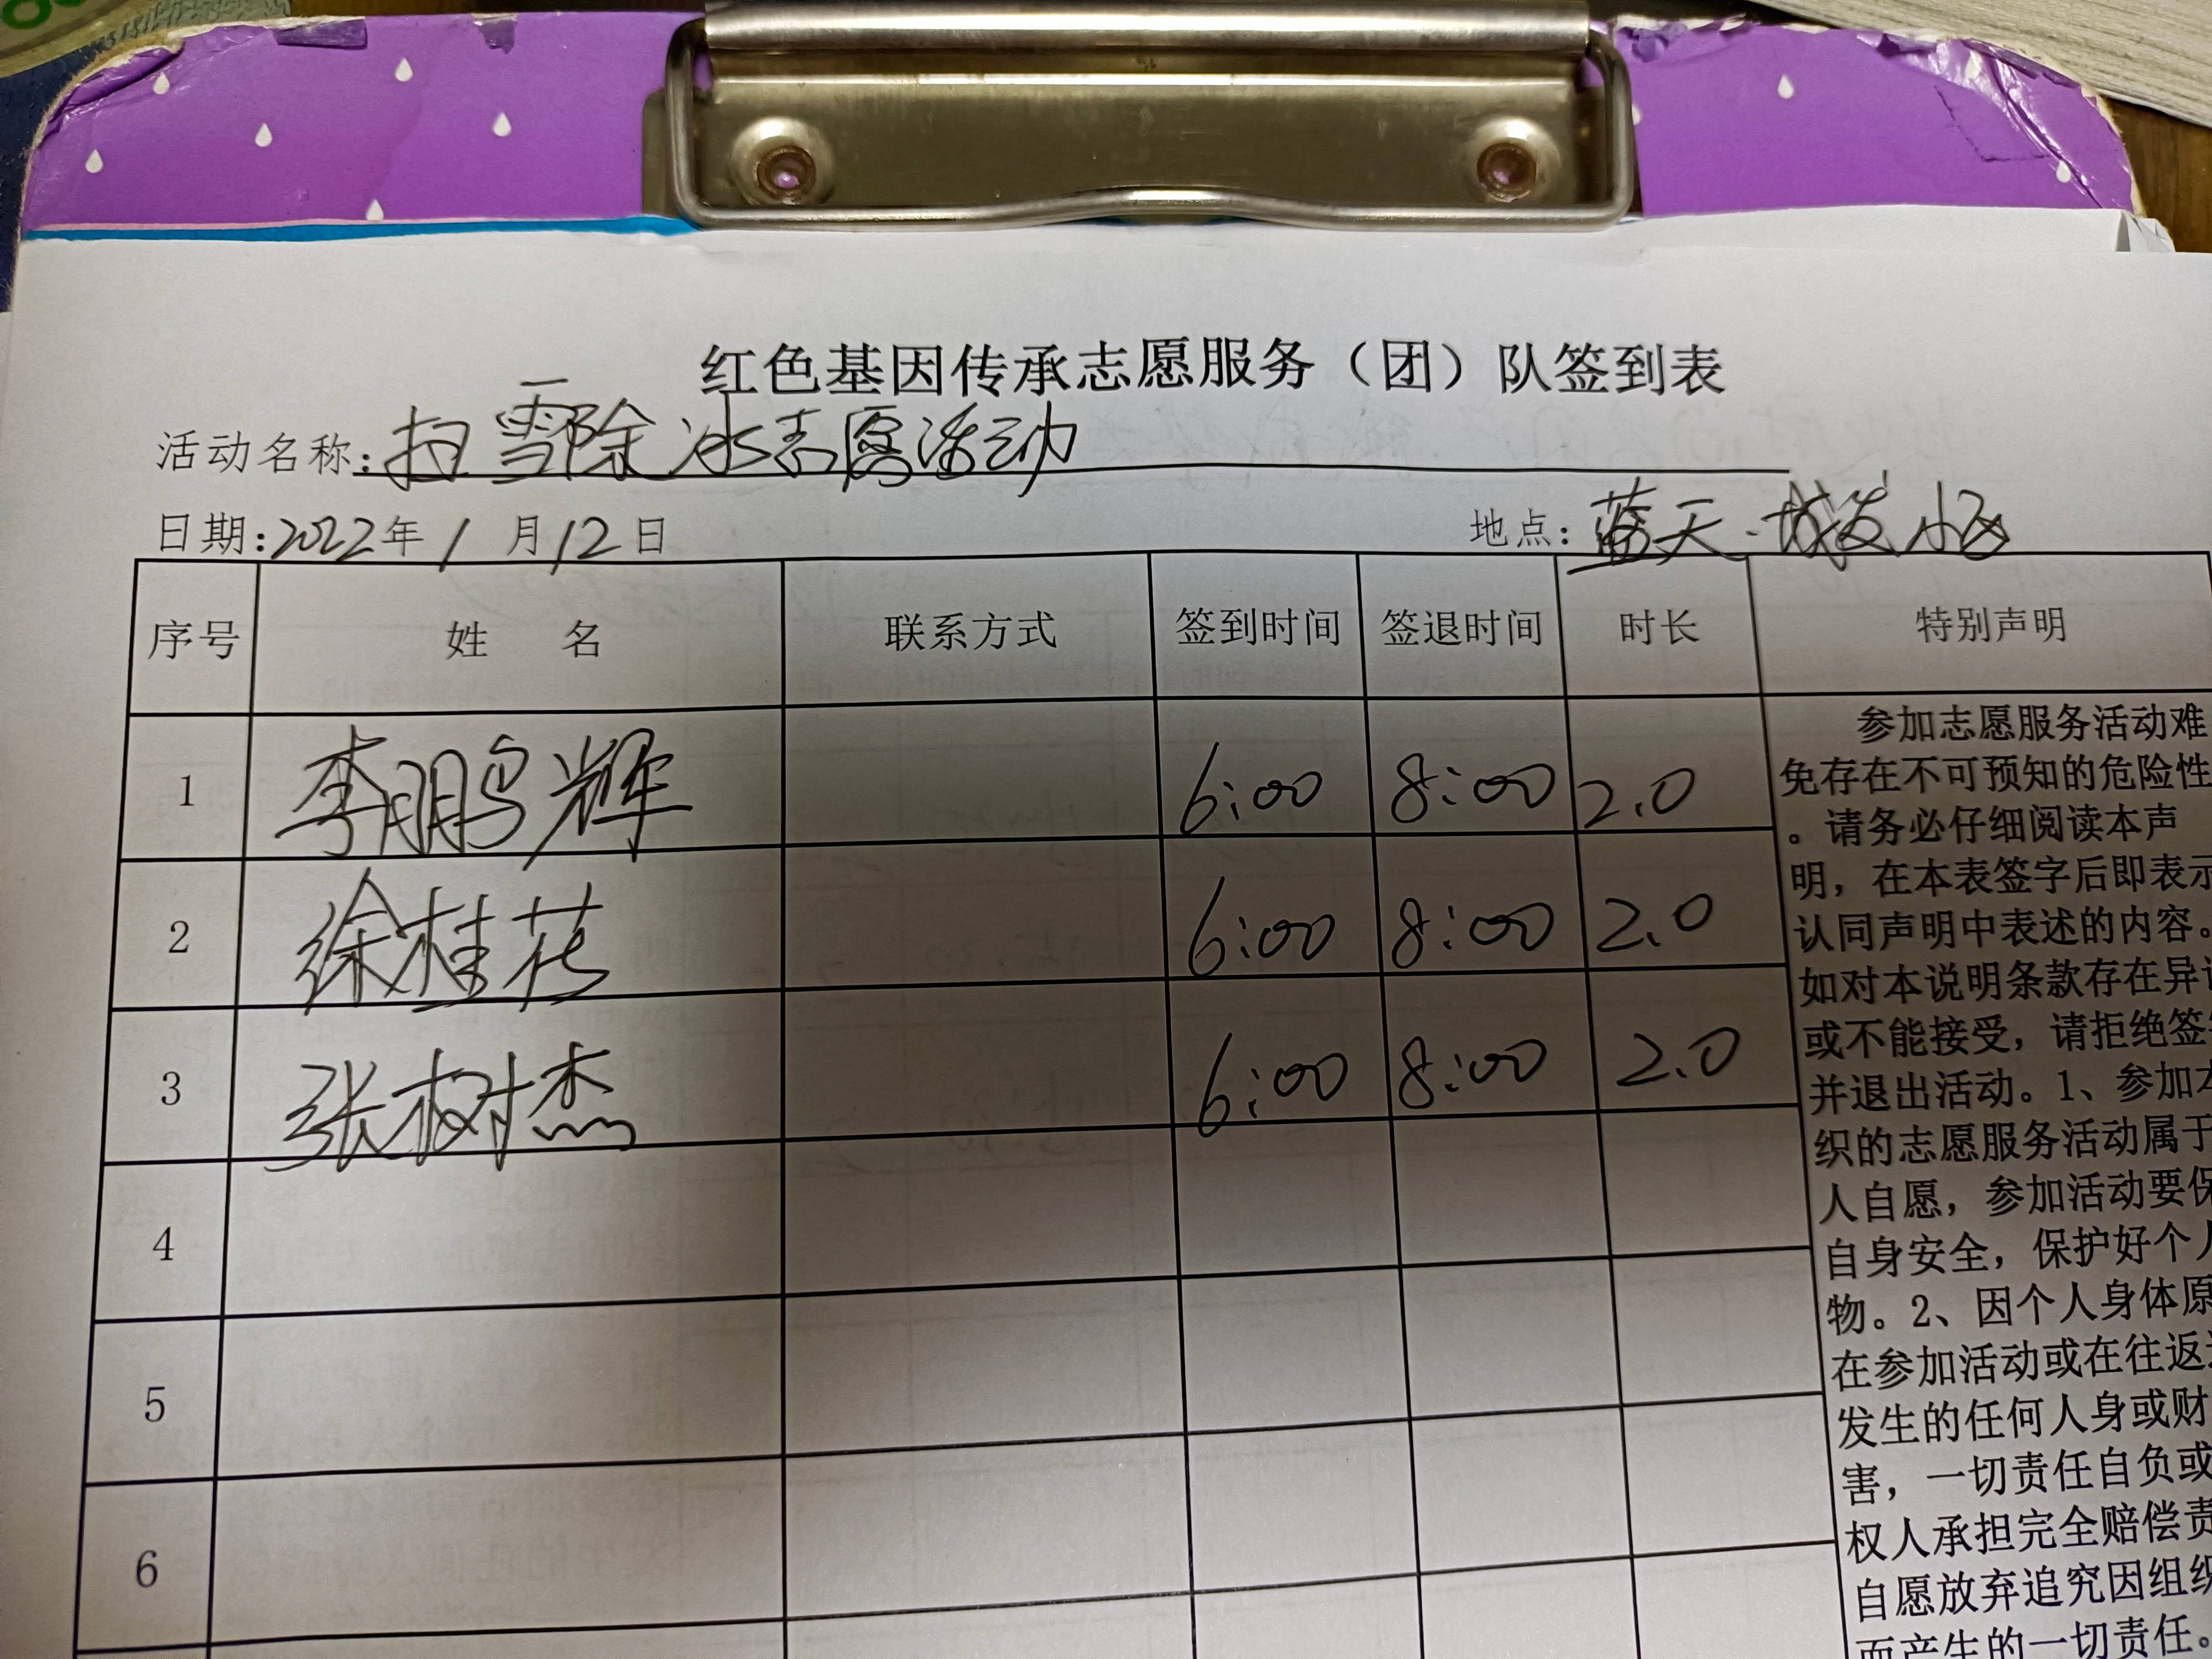 红色基因传承志愿服务（团）队签到表
活动名称：扫雪除冰志愿活动
日期：2022年1月12日 地点：蓝天·城发小区
序号 姓 名 联系方式 签到时间 签退时间 时长 特别声明
1 李鹏辉 6:00 8:00 2.0
2 徐桂花 6:00 8:00 2.0
3 张树杰 6:00 8:00 2.0
4
5
6
参加志愿服务活动难
免存在不可预知的危险性
。请务必仔细阅读本声
明，在本表签字后即表示
认同声明中表述的内容。
如对本说明条款存在异
或不能接受，请拒绝签
并退出活动。1、参加
织的志愿服务活动属于
人自愿，参加活动要保
自身安全，保护好个
物。2、因个人身体原
在参加活动或在往返
发生的任何人身或财
害，一切责任自负或
权人承担完全赔偿责
自愿放弃追究因组织
而产生的一切责任。